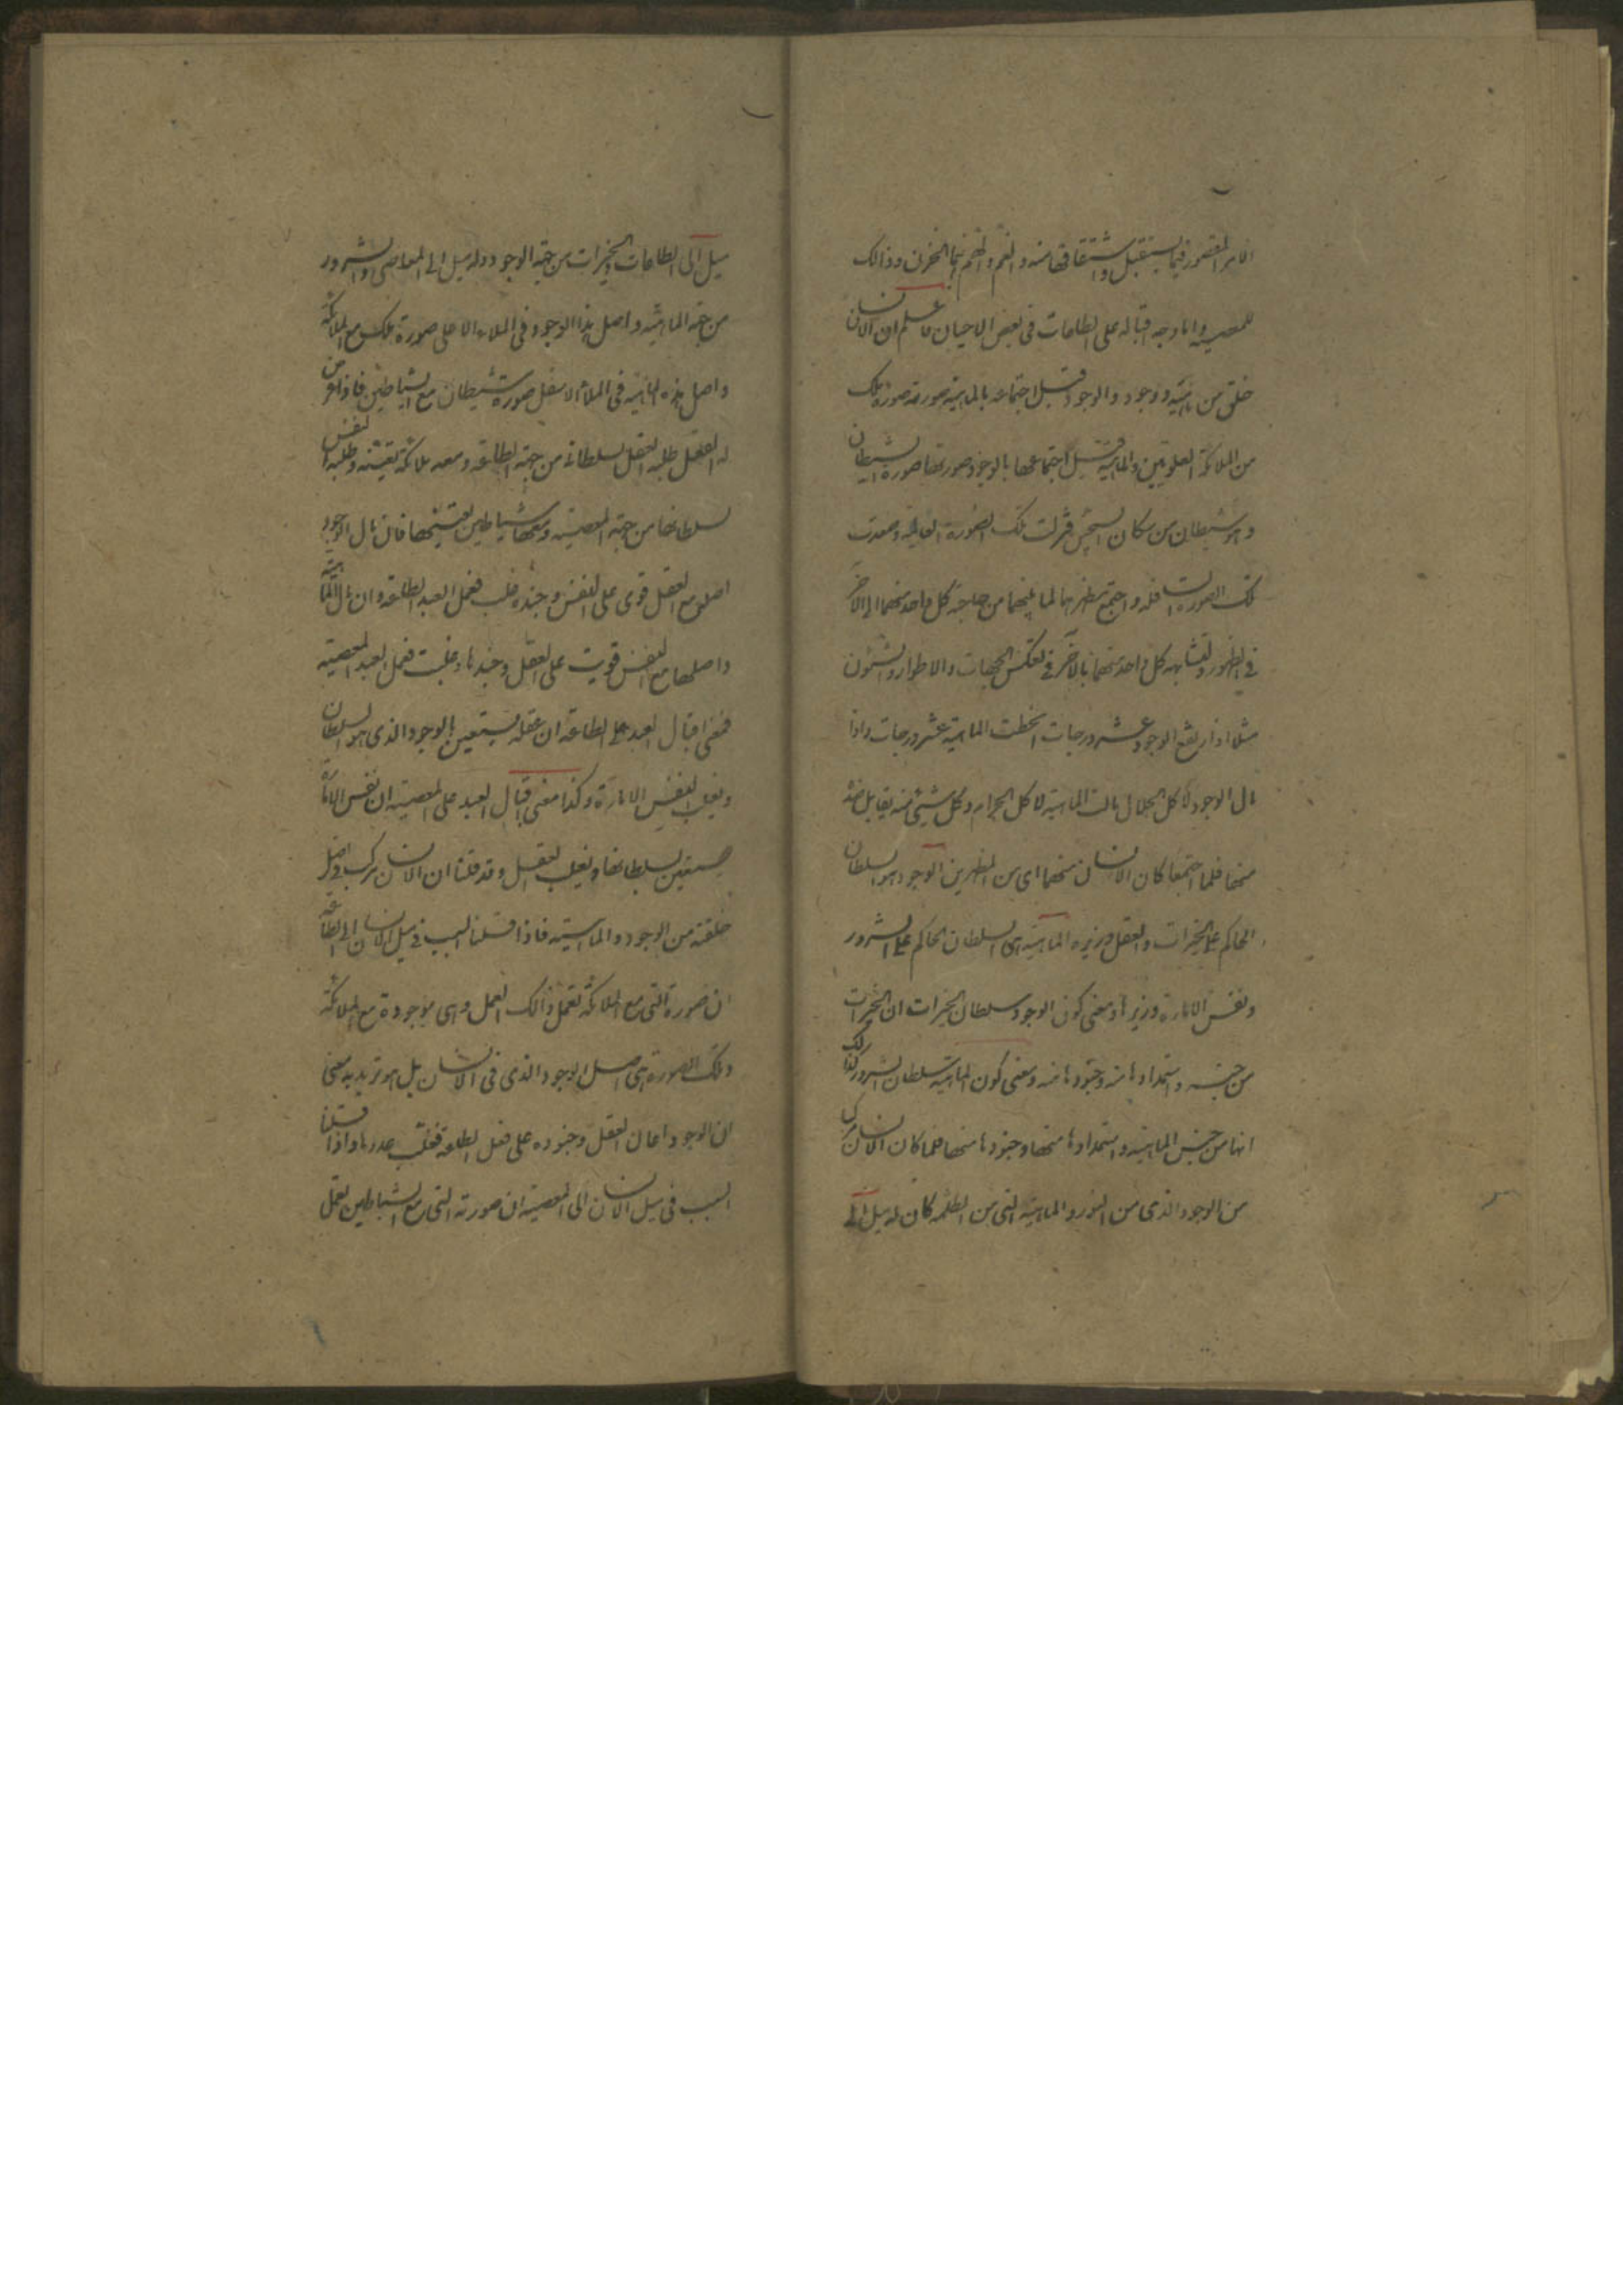 الامر المتصور فيما يستقبل واشتقاقها منه والغم والهم نتايج الحزن وذالك
للمعصية واما وجه اقباله على الطاعات فى بعض الاحيان فاعلم ان الانسان
خلق من ماهية ووجود والوجود قبل اجتماعه بالماهية صورته صورة ملك
من الملائكة العلويين والماهية قبل اجتماعها بالوجود صورتها صورة الشيطان
وهو شيطان من سكان السجين فنزلت تلك الصورة العالية وصعدت
تلك الصورة السافلة واجتمع مظهرهما لما بينهما من حاجة كل واحد منهما الى الاخر
فى الظهور وتشابه كل واحد منهما بالآخر فى تعكس الجهات والاطوار والشئون
مثلا اذا ارتفع الوجود عشر درجات انحطت الماهية عشر درجات واذا
مال الوجود لاكل الحلال مالت الماهية لاكل الحرام وكل شيئ منه يقابل ضده
منها فلما اجتمعا كان الانسان منهما اى من المظهرين الوجود هو السلطان
الحاكم على الخيرات والعقل وزيره الماهية هى السلطان الحاكم على الشرور
ونفس الامارة وزيرها ومعنى كون الوجود سلطان الخيرات ان الخيرات
من جنسه واستمدادها منه وجنودها منه ومعنى كون الماهية سلطان الشرور كذلك
انها من جنس الماهية واستمدادها منها وجنودها منها فلما كان الانسان مركبا
من الوجود الذى من النور والماهية التى من الظلمه كان له ميل الى
ميل الى الطاعات والخيرات من جهة الوجود وله ميل الى المعاصى والشرور
من جهة الماهية واصل هذا الوجود فى الملاء الاعلى صورة ملك مع الملائكة
واصل هذه الماهية فى الملأ الاسفل صورة شيطان مع الشياطين فاذا عرض
له العقل طلبه العقل لسلطانه من جهة الطاعة ومعه ملائكة تعينه وطلبه النفس
لسلطانها من جهة المعصية ومعها شياطين تعينها فان مال الوجود
اصله مع العقل قوى على النفس وجنده فغلب ففعل العبد الطاعة وان مال الماهية
واصلها مع النفس قويت على العقل وجندها وغلبت ففعل العبد المعصية
فمعنى اقبال العبد على الطاعة ان عقله يستعين بالوجود الذى هو السلطان
ويغلب النفس الامارة وكذا معنى اقبال العبد على المعصية ان نفس الامارة
تستعين بسلطانها ويغلب العقل وقد قلنا ان الانسان مركب فى اصل
خلقته من الوجود والماهية فاذا قلنا السبب فى ميل الانسان الى الطاعة
ان صورة التى مع الملائكة تعمل ذالك العمل وهى موجودة مع الملائكة
وتلك الصورة هى اصل الوجود الذى فى الانسان بل هو نريد به معنى
ان الوجود اعان العقل وجنوده على فعل الطاعة فغلب عدوها واذا قلنا
السبب فى ميل الانسان الى المعصية ان صورته التى مع الشياطين تعمل